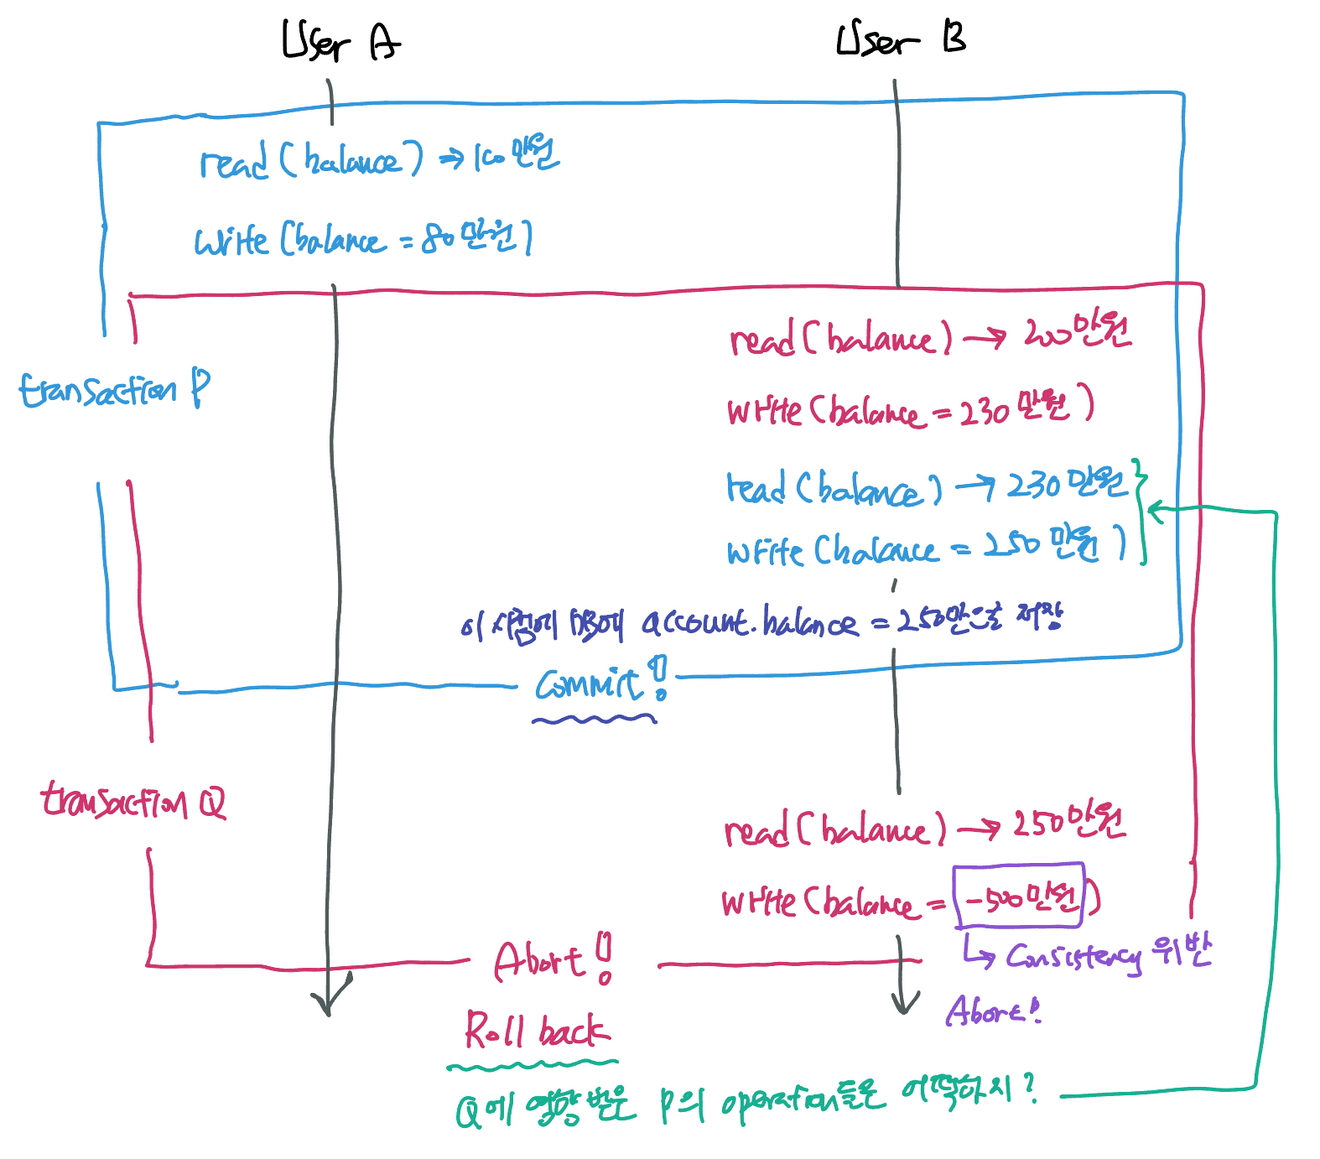 User A
User B
read (balance) → 100만원
write (balance = 80만원)
read (balance) → 200만원
write (balance = 230만원)
transaction P
read (balance) → 230만원
write (balance = 250만원)
이 시점에 DB에 account.balance = 250만원을 저장
Commit!
transaction Q
read (balance) → 250만원
write (balance = -500만원)
↳ Consistency 위반
Abort!
Abort!
Roll back
Q에 영향 받은 P의 operation들은 어떡하지?